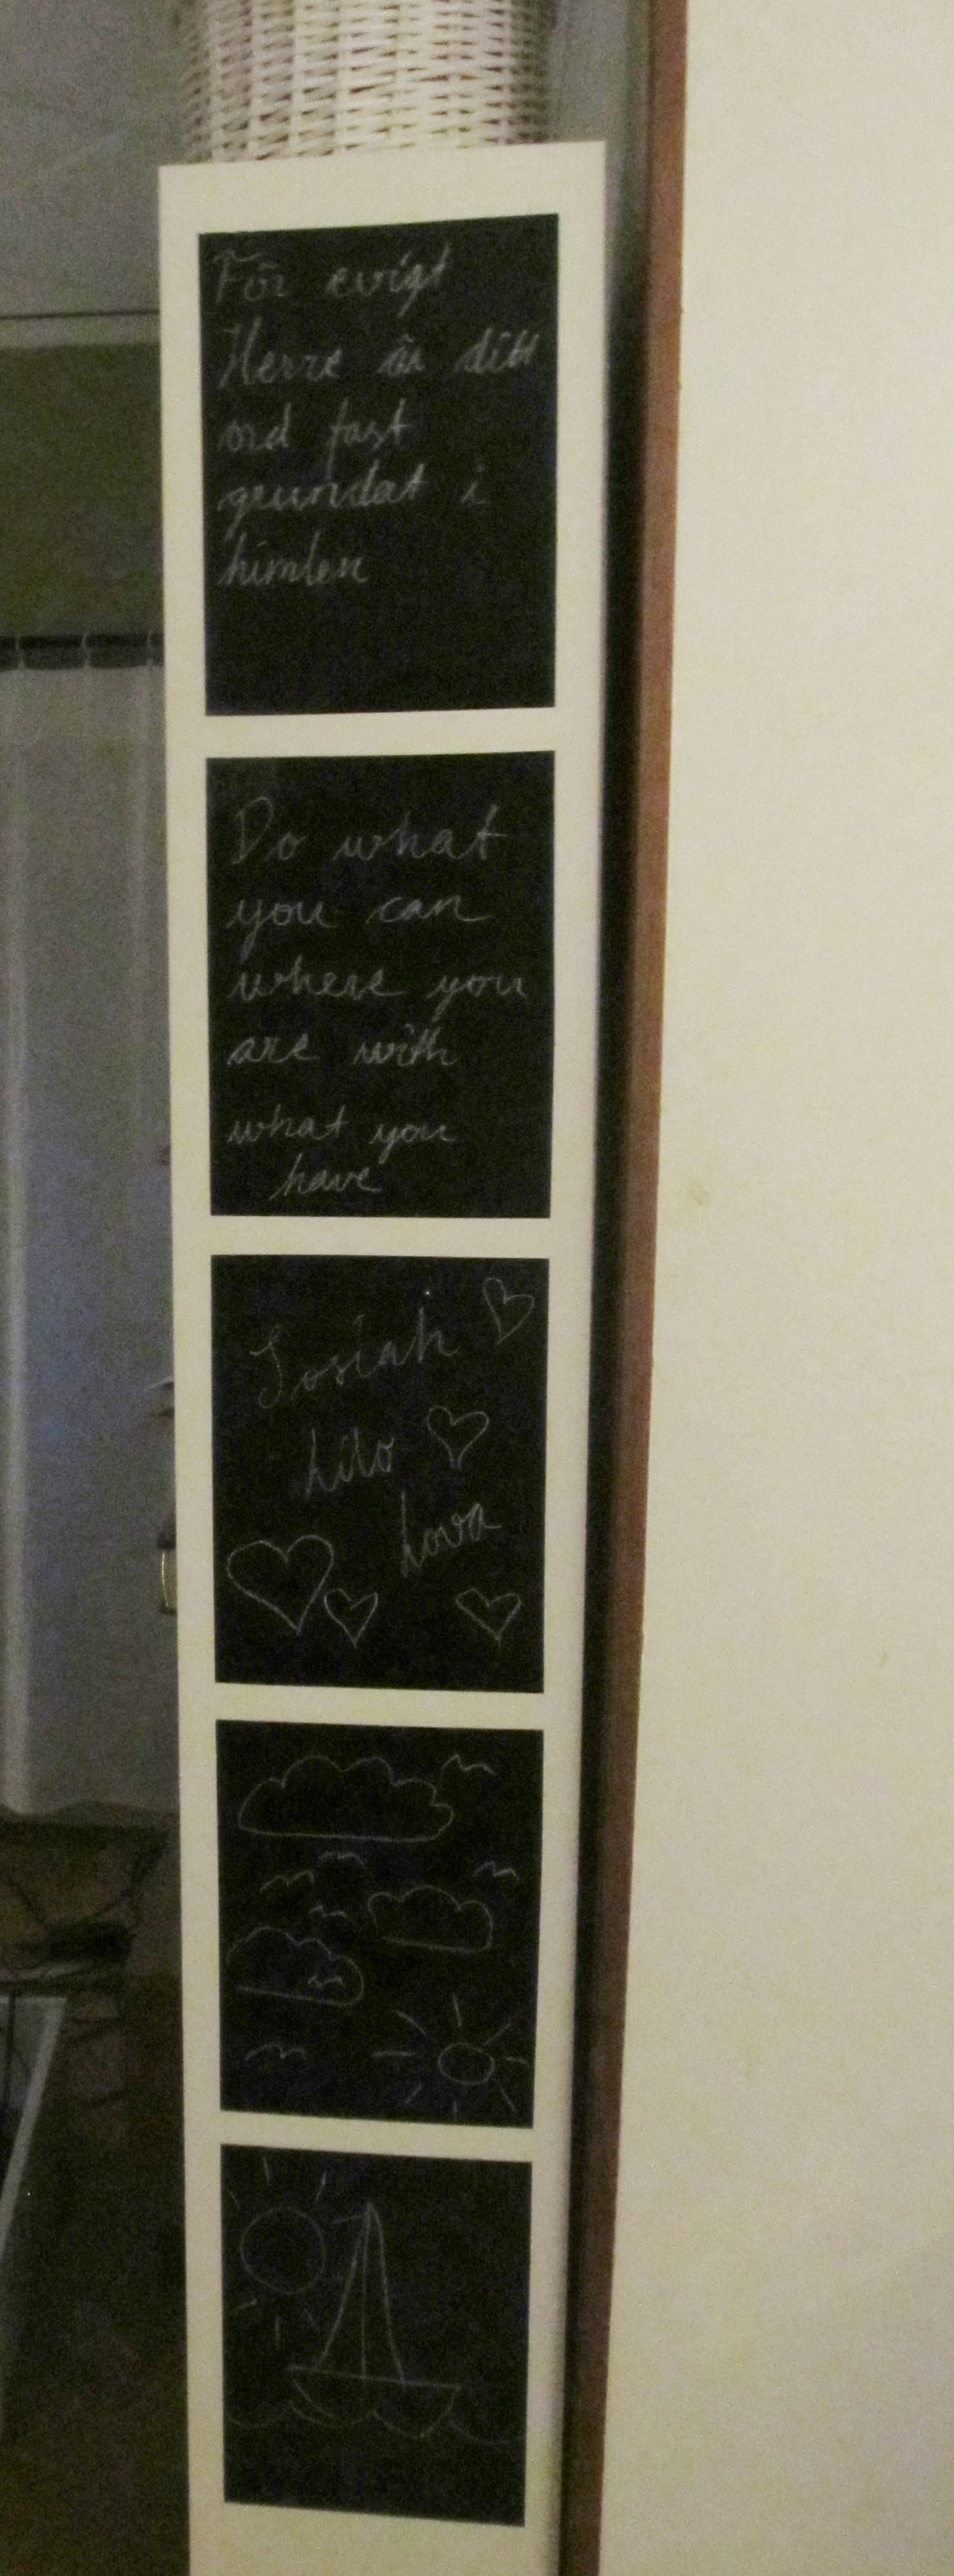 För evigt
Herre är ditt
ord fast
grundat i
himlen
Do what
you can
where you
are with
what you
have
Josiah
Lilo
Lova